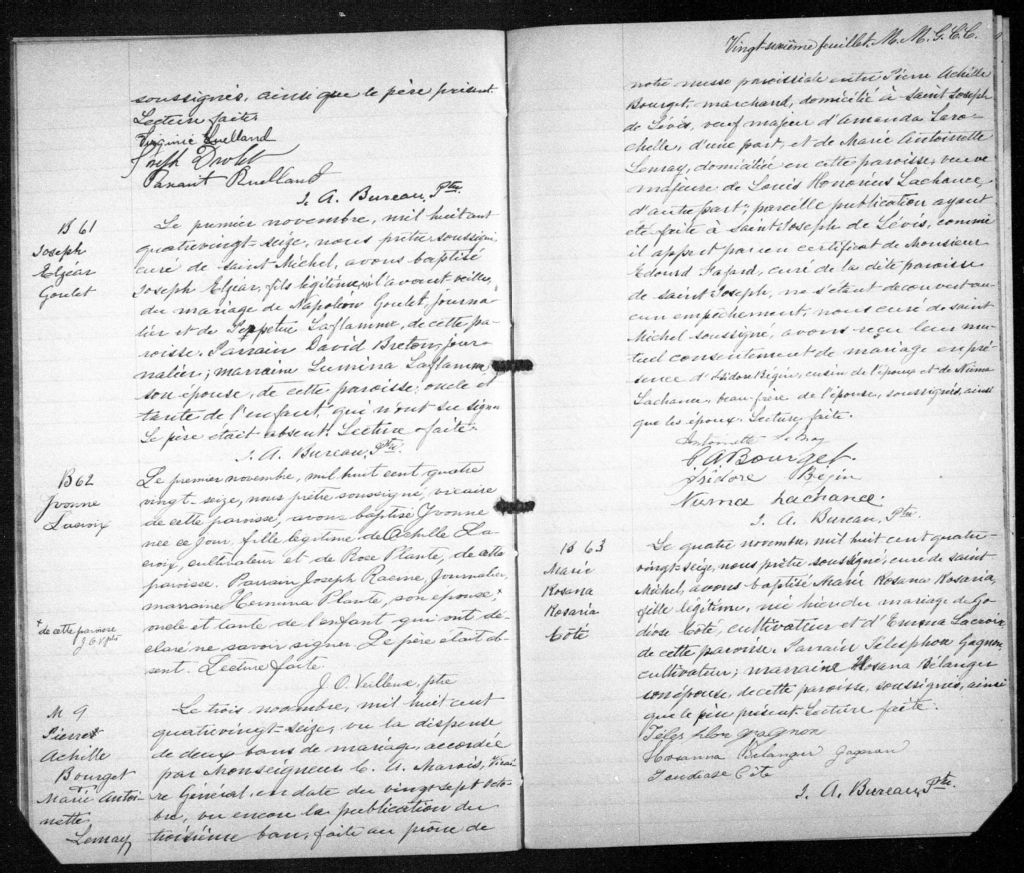 soussignés, ainsi que le père présent
Lecture faite
Virginie Ruelland
Joseph Drolet
Parant Ruelland
J. A. Bureau, Ptre
B 61
Joseph
Elzear
Goulet
Le premier novembre, mil huit cent
quatrevingt-seize, nous prêtre soussigné,
curé de saint Michel, avons baptisé
Joseph Elzéar, fils légitime, né l'avant veille,
du mariage de Napoléon Goulet, journa-
lier et de Perpetue Laflamme, de cette pa-
roisse. Parrain David Breton, jour-
nalier; marraine Lumina Laflamme,
son épouse, de cette paroisse; oncle et
tante de l'enfant, qui n'ont su signer
Le père était absent. Lecture faite.
J. A. Bureau, Ptre.
B 62
Yvonne
Lacroix
Le premier novembre, mil huit cent quatre
vingt-seize, nous prêtre soussigné, vicaire
de cette paroisse, avons baptisé Yvonne
née ce jour, fille légitime de Achille La
croix, cultivateur et de Rose Plante, de cette
paroisse. Parrain Joseph Racine, Journalier,
marraine Hermina Plante, son épouse +
oncle et tante de l'enfant qui ont dé-
claré ne savoir signer. Le père était ab-
sent. Lecture faite.
+ de cette paroisse
J. O. V. ptre
J. O. Veilleux, ptre
M 9
Pierre
Achille
Bourget
&
Marie Antoi-
nette
Lemay
Le trois novembre, mil huit cent
quatrevingt-seize, vu la dispense
de deux bans de mariage, accordée
par Monseigneur C. A. Marois, Vicai
re Général, en date du vingt sept octo-
bre, vu encore la publication du
troisième ban, faite au prône de
Vingt-sixième feuillet. M. M. G. C. C.
notre messe paroissiale entre Pierre Achille
Bourget, marchand, domicilié à Saint Joseph
de Lévis, veuf majeur d'Amanda Laro-
chelle, d'une part, et de Marie Antoinette
Lemay, domiciliée en cette paroisse, veuve
majeure de Louis Honorius Lachance,
d'autre part; pareille publication ayant
été faite à Saint Joseph de Lévis, comme
il appert par un certificat de Monsieur
Edouard Fafard, curé de la dite paroisse
de saint Joseph, ne s'étant découvert au-
cun empêchement, nous curé de saint
Michel soussigné, avons reçu leur mu-
tuel consentement de mariage en pré-
sence d'Isidore Bégin, cousin de l'époux et de Numa
Lachance, beau-frère de l'épouse, soussignés, ainsi
que les époux. Lecture faite.
Antoinette LeMay
P. A Bourget.
Isidore Bégin
Numa Lachance.
J. A. Bureau, Ptre
B 63
Marie
Rosana
Rosaria
Côté
Le quatre novembre, mil huit cent quatre-
vingt-seize, nous prêtre soussigné, curé de saint
Michel, avons baptisé Marie Rosana Rosaria,
fille légitime, née hier du mariage de Go-
diose Côté, cultivateur et d'Emma Lacroix
de cette paroisse. Parrain Télesphore Gagnon,
cultivateur; marraine Rosana Bélanger
son épouse, de cette paroisse, soussignés, ainsi
que le père présent. Lecture faite.
Télesphore Gagnon
Rosanna Bélanger Gagnon
Côté
J. A. Bureau, Ptre.